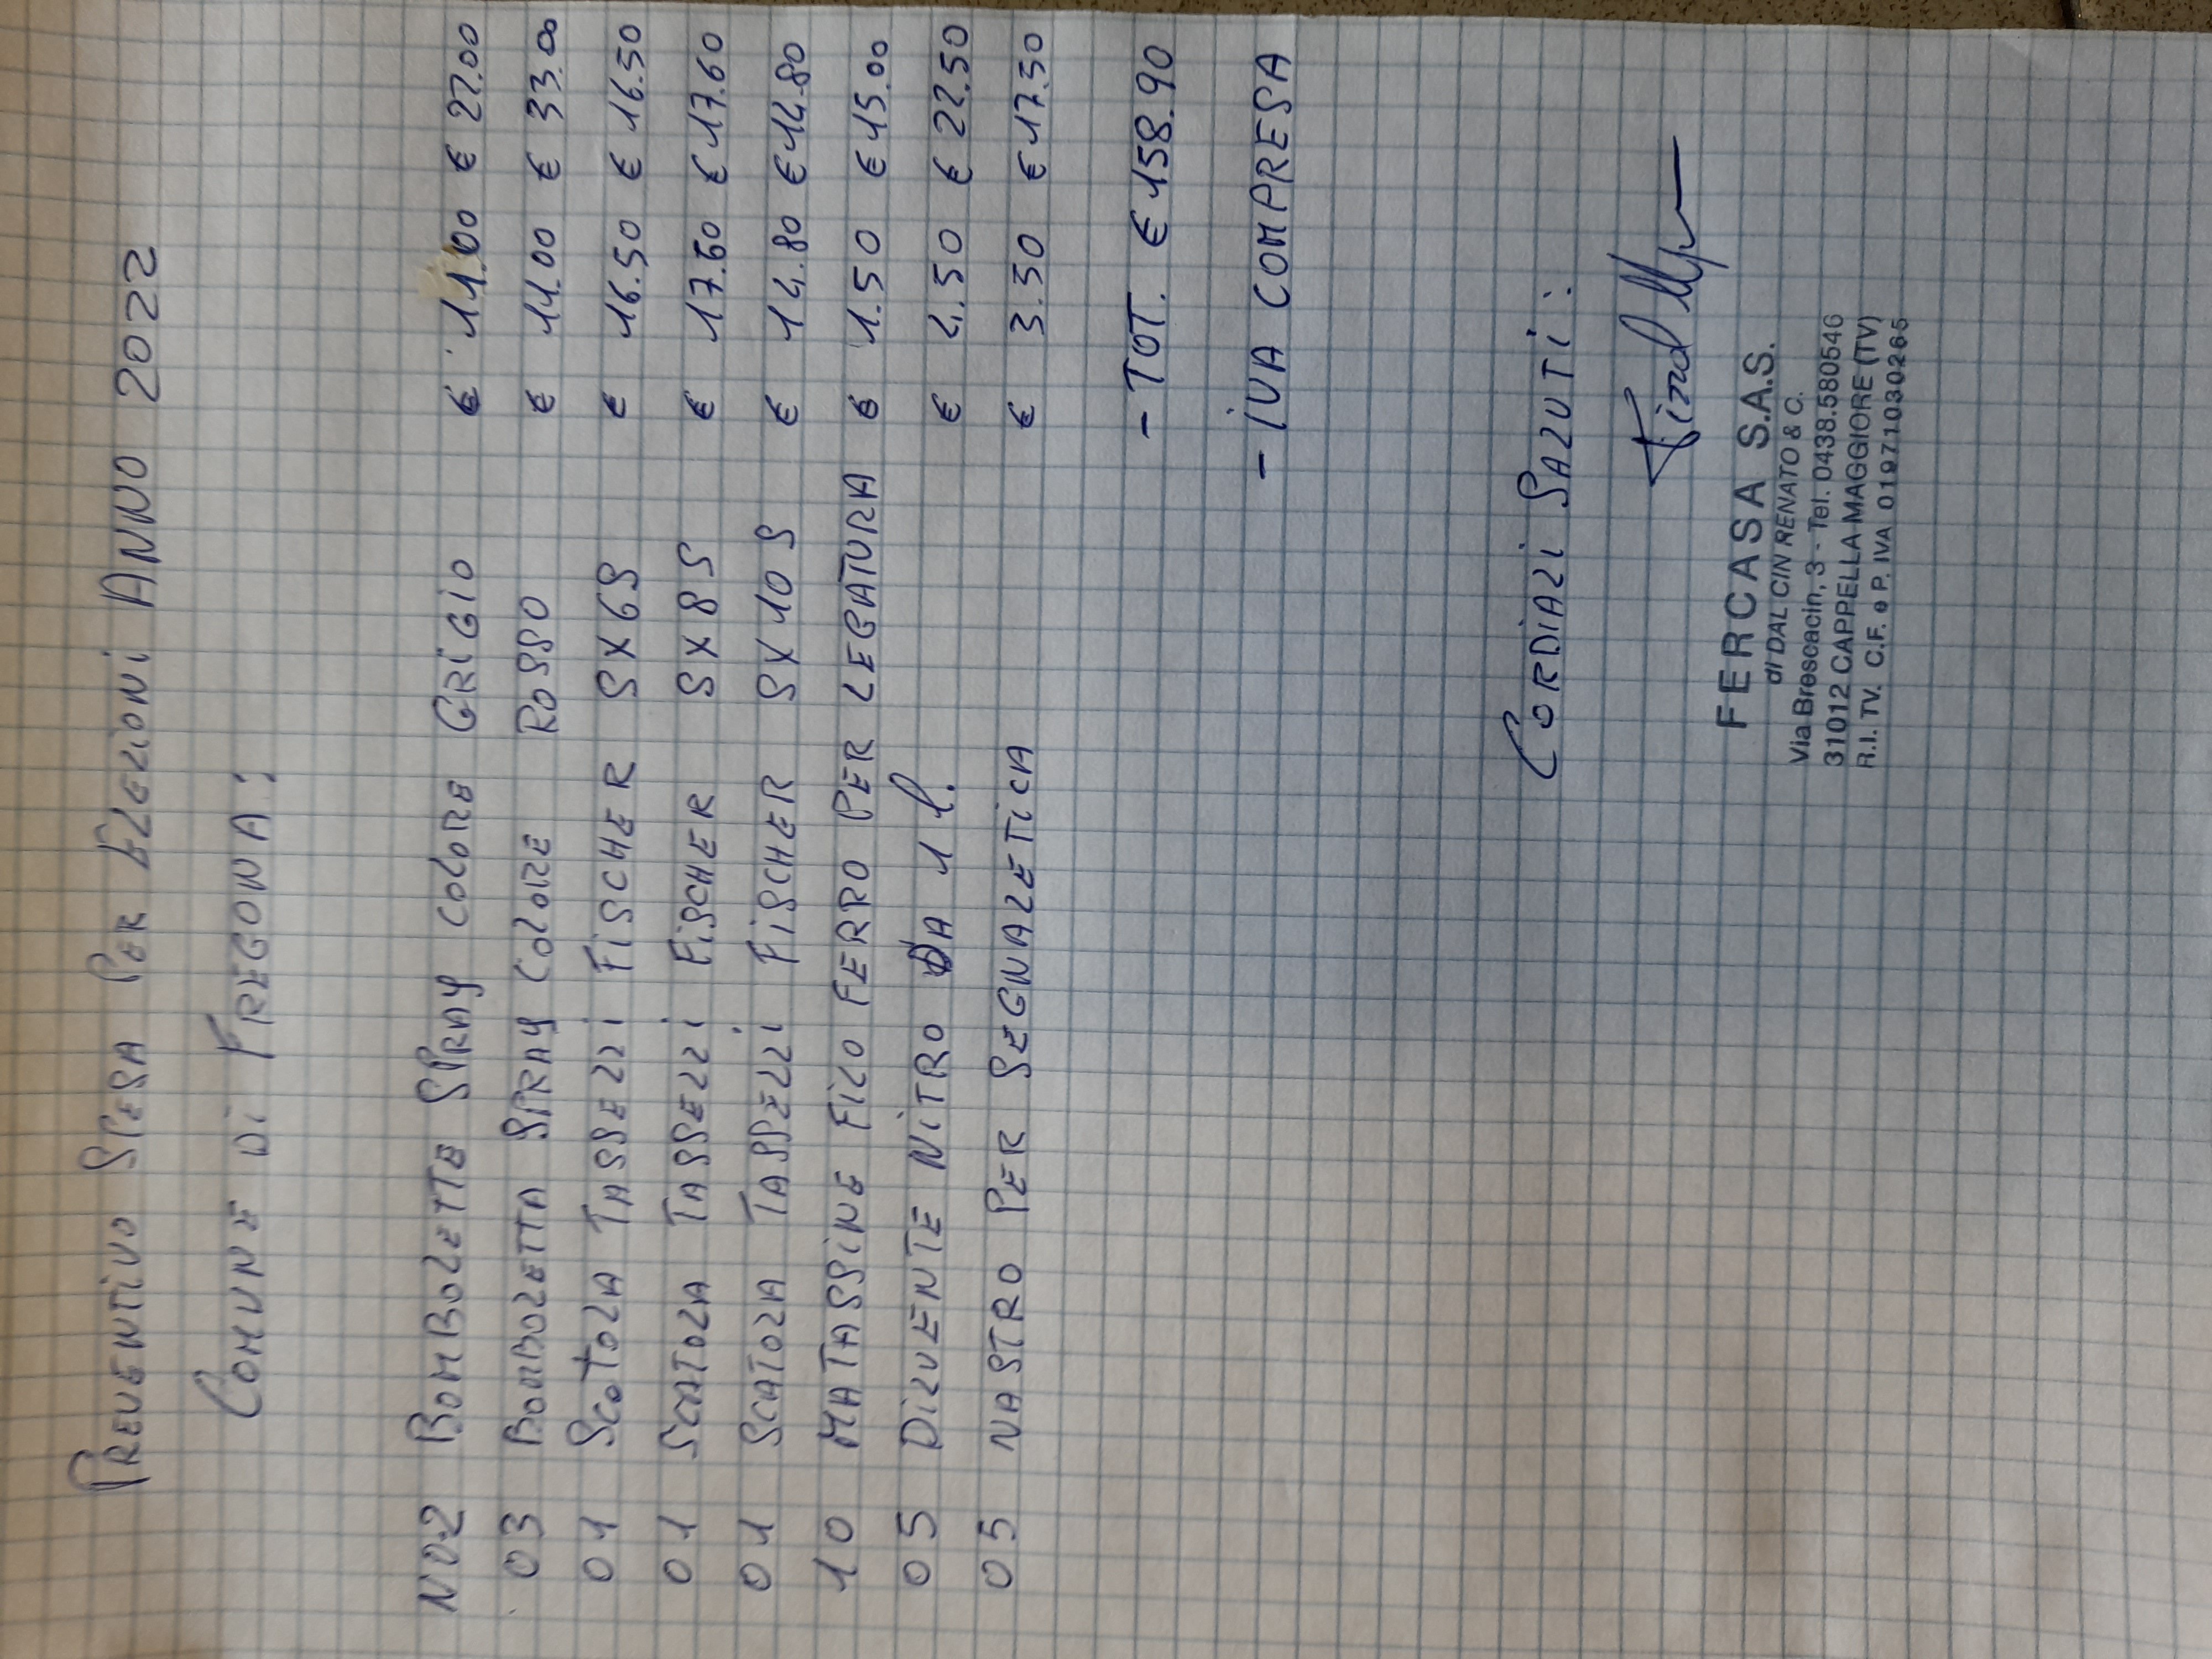 PREVENTIVO SPESA PER ELEZIONI ANNO 2022
COMUNE DI FREGONA:
N°02 BOMBOLETTE SPRAY COLORE GRIGIO € 11.00 € 22.00
03 BOMBOLETTA SPRAY COLORE ROSSO € 11.00 € 33.00
01 SCATOLA TASSELLI FISCHER SX6S € 16.50 € 16.50
01 SCATOLA TASSELLI FISCHER SX8S € 17.60 € 17.60
01 SCATOLA TASSELLI FISCHER SX10S € 14.80 € 14.80
10 MATASSINE FILO FERRO PER LEGATURA € 1.50 € 15.00
05 DILUENTE NITRO DA 1 l. € 4.50 € 22.50
05 NASTRO PER SEGNALETICA € 3.50 € 17.50
- TOT. € 158.90
- IVA COMPRESA
CORDIALI SALUTI:
FERCASA S.A.S.
di DAL CIN RENATO & C.
Via Brescacin, 3 - Tel. 0438.580546
31012 CAPPELLA MAGGIORE (TV)
R.I. TV. C.F. e P. IVA 01971030265